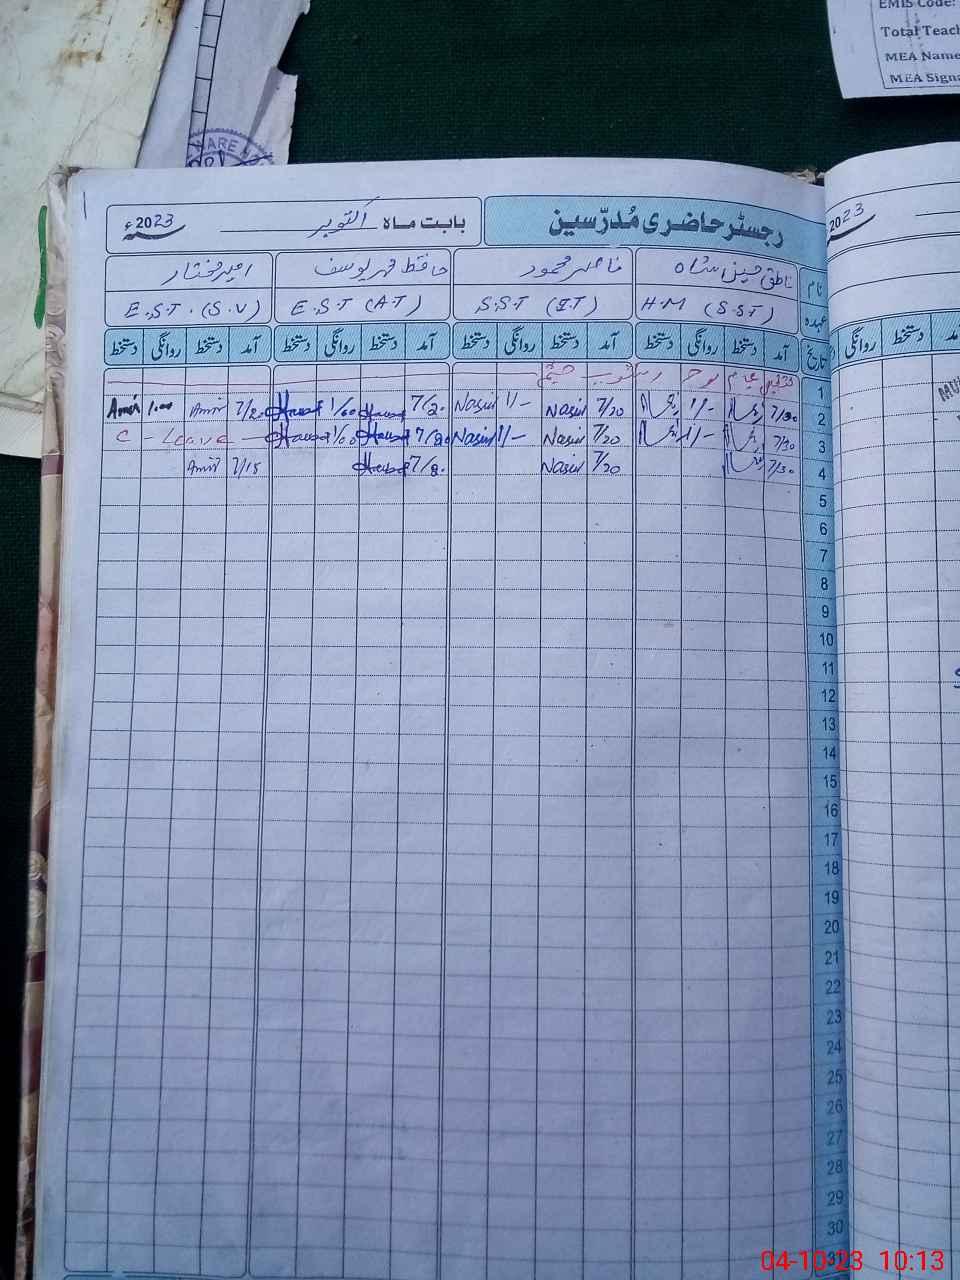 EMIS Code:
Total Teach
MEA Name
MEA Signa
WARE
رجسٹر حاضری مُدرّسین
بابت ماہ اکتوبر 2023ء
2023
نام ناطق حسین شاہ ناصر محمود حافظ محمد یوسف امیر مختار
عہدہ H.M (S.ST) S.S.T (I.T) E.S.T (A.T) E.S.T. (S.V)
تاریخ آمد دستخط روانگی دستخط آمد دستخط روانگی دستخط آمد دستخط روانگی دستخط آمد دستخط روانگی دستخط
روانگی دستخط
1
2 7/30 1/- 7/20 Nasir 1/- Nasir 7/20 1/00 7/20 Amir 1:00 Amir
3 7/30 1/- 7/20 Nasir 1/- Nasir 7/20 1/00 C - Leave -
4 7/30 7/20 Nasir 7/15 Amir
5
6
7
8
9
10
11
12
13
14
15
16
17
18
19
20
21
22
23
24
25
26
27
28
29
30
31
04-10-23 10:13